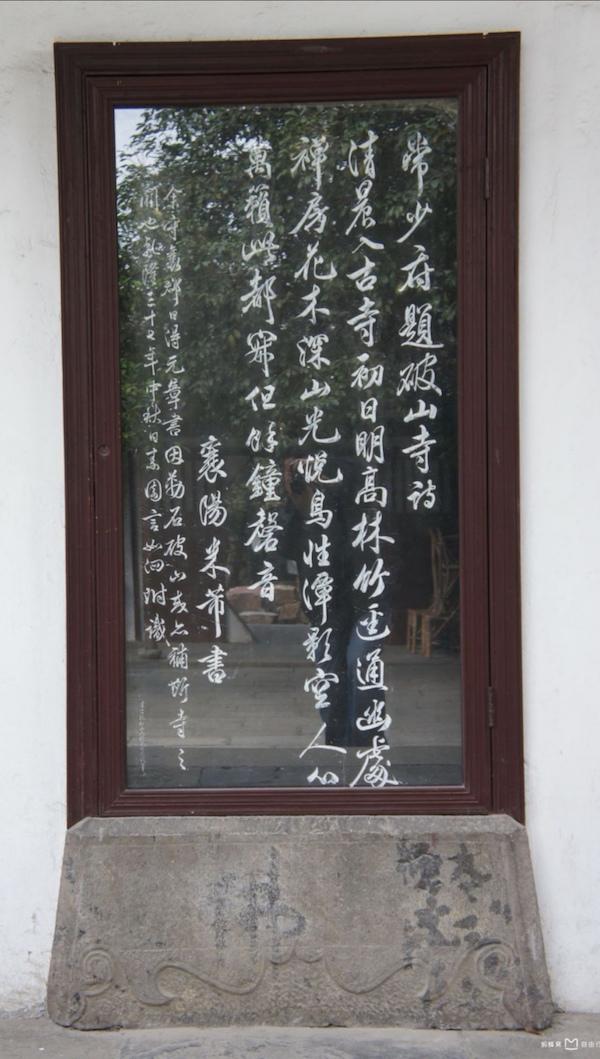 常少府題破山寺詩
清晨入古寺初日明高林竹逕通幽處
禪房花木深山光悅鳥性潭影空人心
萬籟此都寂但餘鐘磬音
襄陽米芾書
余守襄郡日得元章書因勒石破山或亦補斯寺之
闕也乾隆三十七年中秋日素園言如泗附識
佛
蚂蜂窝 自由行